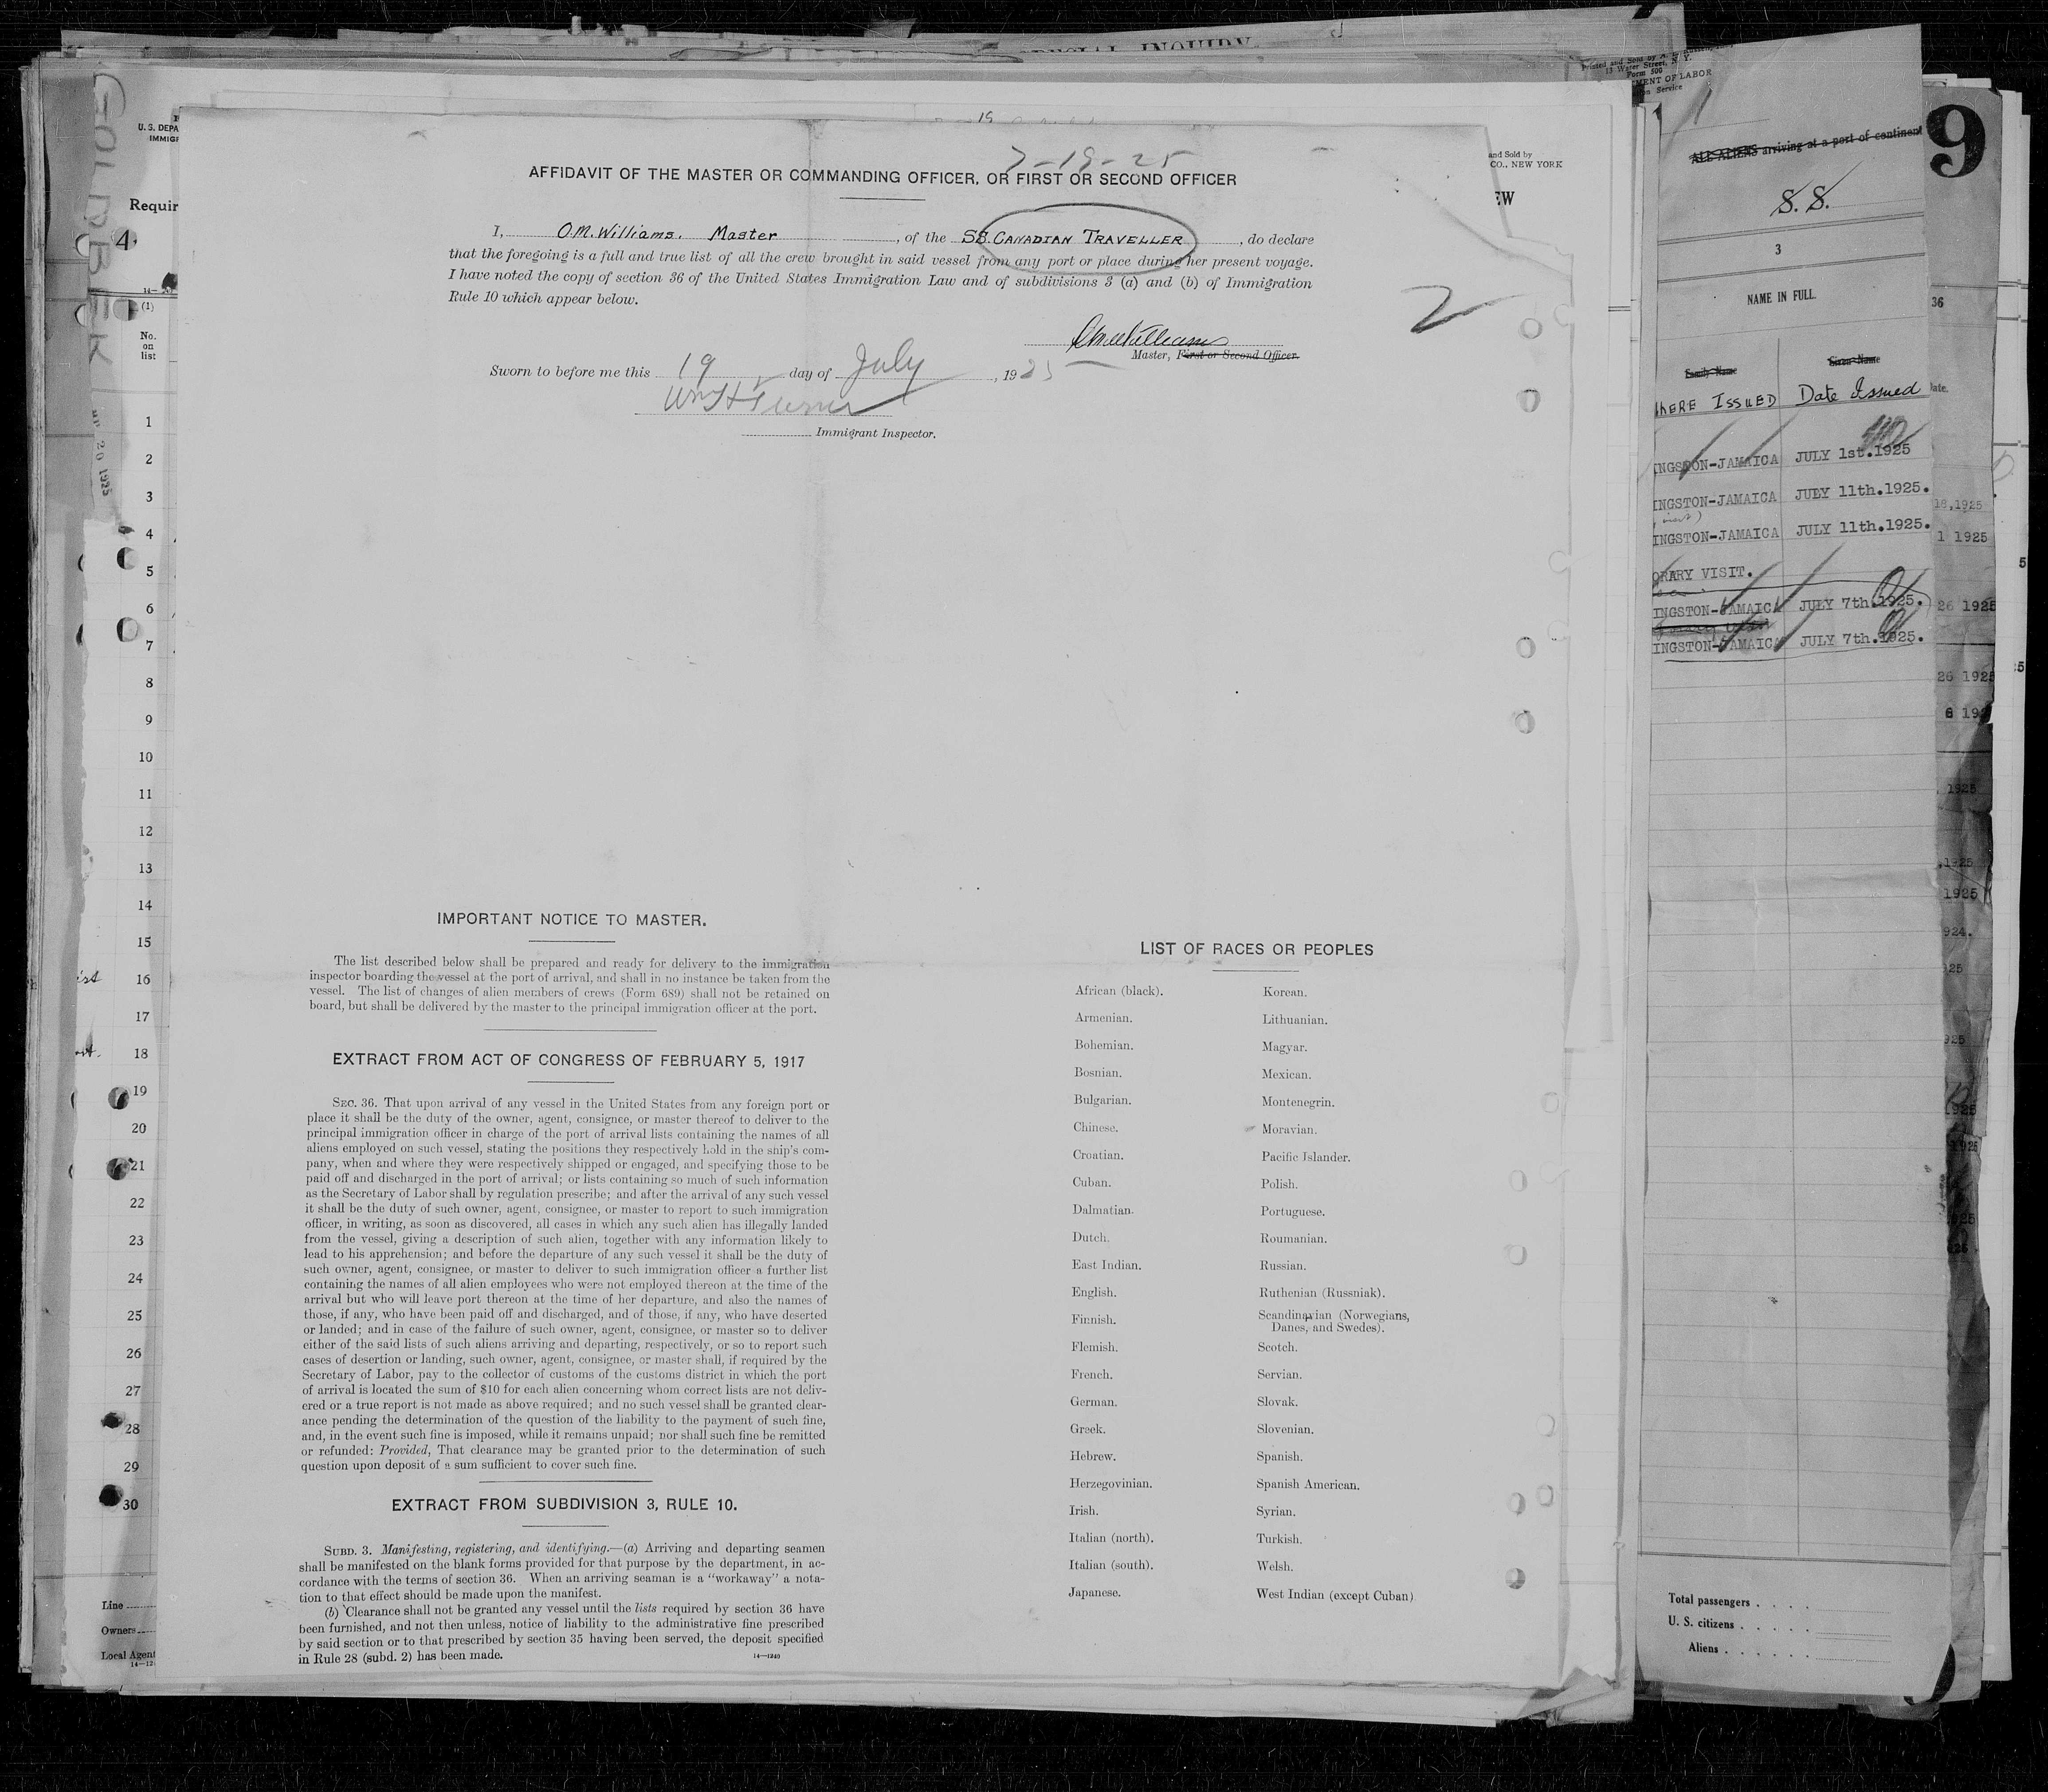 SPECIAL INQUIRY
GOLDBEEK
U. S. DEPA
IMMIG
Requir
4.
(1)
No.
on
list
1
2
3
4
5
6
7
8
9
10
11
12
13
14
15
16
17
18
19
20
21
22
23
24
25
26
27
28
29
30
Line
Owners
Local Agent
20 1925
19
7-19-25
AFFIDAVIT OF THE MASTER OR COMMANDING OFFICER, OR FIRST OR SECOND OFFICER
I, O.M. Williams. Master, of the SS. CANADIAN TRAVELLER, do declare
that the foregoing is a full and true list of all the crew brought in said vessel from any port or place during her present voyage.
I have noted the copy of section 36 of the United States Immigration Law and of subdivisions 3 (a) and (b) of Immigration
Rule 10 which appear below.
2
OM Williams
Master, First or Second Officer.
Sworn to before me this 19 day of July, 1925
Wm H Turner
Immigrant Inspector.
IMPORTANT NOTICE TO MASTER.
The list described below shall be prepared and ready for delivery to the immigration
inspector boarding the vessel at the port of arrival, and shall in no instance be taken from the
vessel. The list of changes of alien members of crews (Form 689) shall not be retained on
board, but shall be delivered by the master to the principal immigration officer at the port.
EXTRACT FROM ACT OF CONGRESS OF FEBRUARY 5, 1917
SEC. 36. That upon arrival of any vessel in the United States from any foreign port or
place it shall be the duty of the owner, agent, consignee, or master thereof to deliver to the
principal immigration officer in charge of the port of arrival lists containing the names of all
aliens employed on such vessel, stating the positions they respectively hold in the ship's com-
pany, when and where they were respectively shipped or engaged, and specifying those to be
paid off and discharged in the port of arrival; or lists containing so much of such information
as the Secretary of Labor shall by regulation prescribe; and after the arrival of any such vessel
it shall be the duty of such owner, agent, consignee, or master to report to such immigration
officer, in writing, as soon as discovered, all cases in which any such alien has illegally landed
from the vessel, giving a description of such alien, together with any information likely to
lead to his apprehension; and before the departure of any such vessel it shall be the duty of
such owner, agent, consignee, or master to deliver to such immigration officer a further list
containing the names of all alien employees who were not employed thereon at the time of the
arrival but who will leave port thereon at the time of her departure, and also the names of
those, if any, who have been paid off and discharged, and of those, if any, who have deserted
or landed; and in case of the failure of such owner, agent, consignee, or master so to deliver
either of the said lists of such aliens arriving and departing, respectively, or so to report such
cases of desertion or landing, such owner, agent, consignee, or master shall, if required by the
Secretary of Labor, pay to the collector of customs of the customs district in which the port
of arrival is located the sum of $10 for each alien concerning whom correct lists are not deliv-
ered or a true report is not made as above required; and no such vessel shall be granted clear-
ance pending the determination of the question of the liability to the payment of such fine,
and, in the event such fine is imposed, while it remains unpaid; nor shall such fine be remitted
or refunded: Provided, That clearance may be granted prior to the determination of such
question upon deposit of a sum sufficient to cover such fine.
EXTRACT FROM SUBDIVISION 3, RULE 10.
SUBD. 3. Manifesting, registering, and identifying.—(a) Arriving and departing seamen
shall be manifested on the blank forms provided for that purpose by the department, in ac-
cordance with the terms of section 36. When an arriving seaman is a "workaway" a nota-
tion to that effect should be made upon the manifest.
(b) Clearance shall not be granted any vessel until the lists required by section 36 have
been furnished, and not then unless, notice of liability to the administrative fine prescribed
by said section or to that prescribed by section 35 having been served, the deposit specified
in Rule 28 (subd. 2) has been made.
14—1240
LIST OF RACES OR PEOPLES
African (black). Korean.
Armenian. Lithuanian.
Bohemian. Magyar.
Bosnian. Mexican.
Bulgarian. Montenegrin.
Chinese. Moravian.
Croatian. Pacific Islander.
Cuban. Polish.
Dalmatian. Portuguese.
Dutch. Roumanian.
East Indian. Russian.
English. Ruthenian (Russniak).
Finnish. Scandinavian (Norwegians,
Danes, and Swedes).
Flemish. Scotch.
French. Servian.
German. Slovak.
Greek. Slovenian.
Hebrew. Spanish.
Herzegovinian. Spanish American.
Irish. Syrian.
Italian (north). Turkish.
Italian (south). Welsh.
Japanese. West Indian (except Cuban)
and Sold by
CO., NEW YORK
EW
Printed and Sold by
Water Street, N. Y.
Form 500
MENT OF LABOR
Service
1
ALL ALIENS arriving at a port of continent
9
S. S.
3
NAME IN FULL.
36
Family Name Given Name
WHERE ISSUED Date Issued
Date.
INGSTON-JAMAICA JULY 1st.1925
INGSTON-JAMAICA JUEY 11th.1925.
18,1925
INGSTON-JAMAICA JULY 11th.1925.
1 1925
ORARY VISIT.
INGSTON-JAMAICA JULY 7th.1925.
26 1925
INGSTON-JAMAICA JULY 7th.1925.
26 1925
6 192
1925
,1925
1925
924.
25
925
1925
1925
Total passengers
U. S. citizens
Aliens